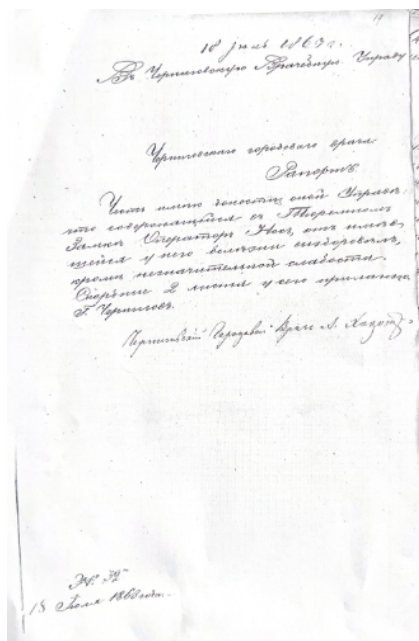 19
18 Июль 1863 г.
Въ Черниговскую Врачебную Управу
Черниговскаго городоваго врача
Рапортъ.
Честь имѣю донести оной Управѣ,
что содержащійся въ Тюремномъ
Замкѣ Операторъ Носъ, отъ имѣв-
шейся у него болѣзни выздоровѣлъ,
кромѣ незначительной слабости.
листа у сего
Г. Черниговъ.
Черниговскій Городовой Врачь
№ 32
18 Іюля 1863 года.